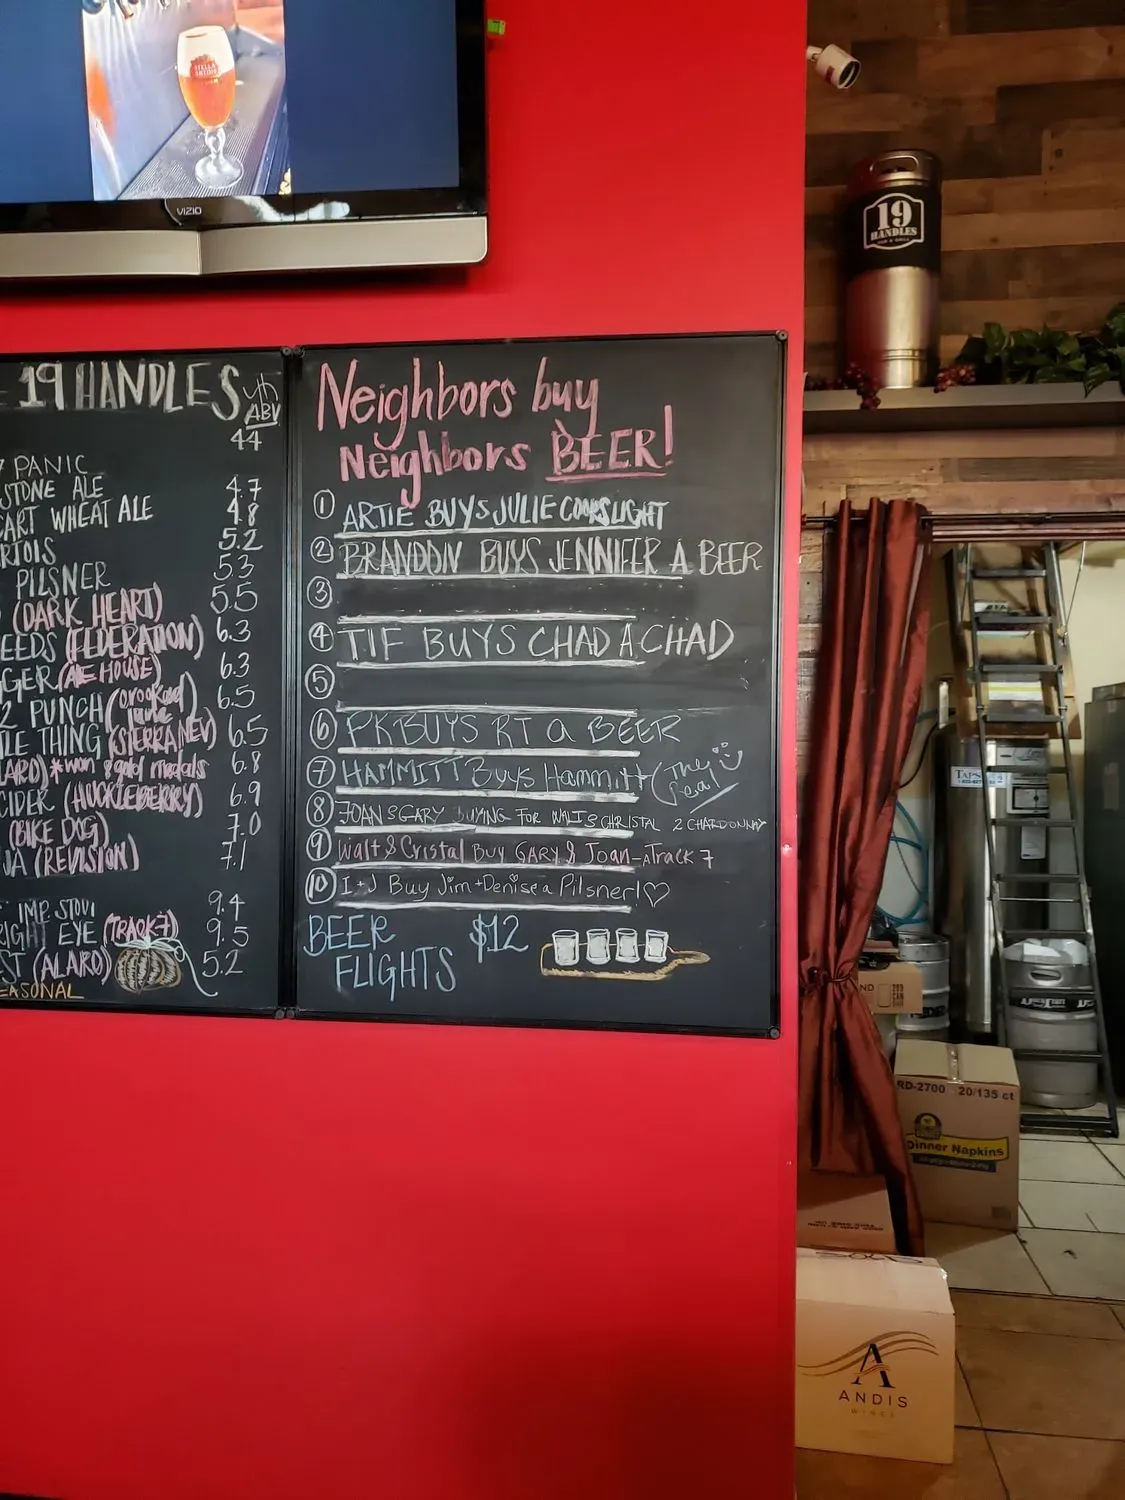 STELLA
ARTOIS
VIZIO
19
HANDLES
BAR & GRILL
19 HANDLES
ABV
44
PANIC
STONE ALE 4.7
CART WHEAT ALE 4.8
RTOIS 5.2
PILSNER 5.3
(DARK HEART) 5.5
EEDS (FEDERATION) 6.3
GER (ALE HOUSE) 6.3
2 PUNCH (crooked lane) 6.5
LE THING (SIERRA NEV) 6.5
ARO) *won 8 gold medals 6.8
CIDER (HUCKLEBERRY) 6.9
(BIKE DOG) 7.0
JA (REVISION) 7.1
IMP. STOVT 9.4
RIGHT EYE (TRACK 7) 9.5
ST (ALARO) 5.2
EASONAL
Neighbors buy
Neighbors BEER!
1 ARTIE BUYS JULIE COORS LIGHT
2 BRANDON BUYS JENNIFER A BEER
3
4 TIF BUYS CHAD A CHAD
5
6 PK BUYS RT a BEER
7 HAMMITT Buys Hammitt (The real
8 JOAN & GARY BUYING FOR WALT & CHRISTAL 2 CHARDONNAY
9 Walt & Cristal Buy GARY & Joan - A Track 7
10 I + J Buy Jim + Denise a Pilsner! ♡
BEER $12
FLIGHTS
TAPS
RD-2700 20/135 ct
Dinner Napkins
A
ANDIS
WINES